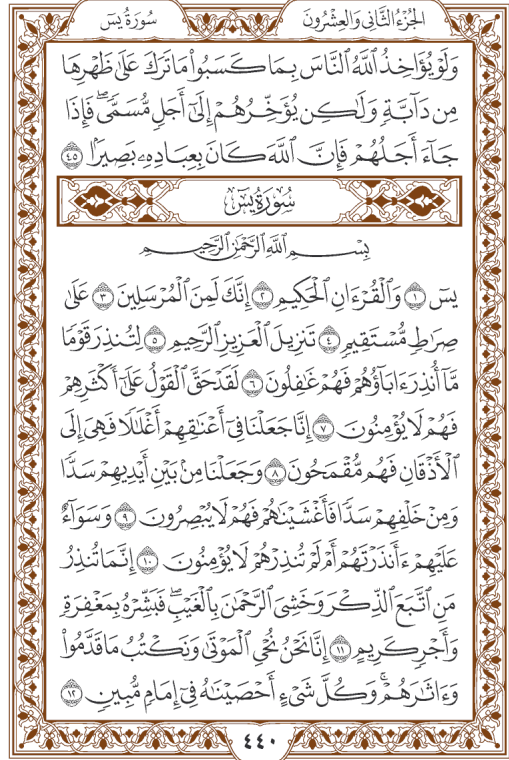 سُورَةُ يسٓ
الجُزْءُ الثَّانِي وَالعِشْرُونَ
وَلَوْ يُؤَاخِذُ ٱللَّهُ ٱلنَّاسَ بِمَا كَسَبُوا۟ مَا تَرَكَ عَلَىٰ ظَهْرِهَا
مِن دَآبَّةٍ وَلَـٰكِن يُؤَخِّرُهُمْ إِلَىٰٓ أَجَلٍ مُّسَمًّى ۖ فَإِذَا
جَآءَ أَجَلُهُمْ فَإِنَّ ٱللَّهَ كَانَ بِعِبَادِهِۦ بَصِيرًۢا ٤٥
سُورَةُ يسٓ
بِسْمِ ٱللَّهِ ٱلرَّحْمَـٰنِ ٱلرَّحِيمِ
يسٓ ١ وَٱلْقُرْءَانِ ٱلْحَكِيمِ ٢ إِنَّكَ لَمِنَ ٱلْمُرْسَلِينَ ٣ عَلَىٰ
صِرَٰطٍ مُّسْتَقِيمٍ ٤ تَنزِيلَ ٱلْعَزِيزِ ٱلرَّحِيمِ ٥ لِتُنذِرَ قَوْمًا
مَّآ أُنذِرَ ءَابَآؤُهُمْ فَهُمْ غَـٰفِلُونَ ٦ لَقَدْ حَقَّ ٱلْقَوْلُ عَلَىٰٓ أَكْثَرِهِمْ
فَهُمْ لَا يُؤْمِنُونَ ٧ إِنَّا جَعَلْنَا فِىٓ أَعْنَـٰقِهِمْ أَغْلَـٰلًا فَهِىَ إِلَى
ٱلْأَذْقَانِ فَهُم مُّقْمَحُونَ ٨ وَجَعَلْنَا مِنۢ بَيْنِ أَيْدِيهِمْ سَدًّا
وَمِنْ خَلْفِهِمْ سَدًّا فَأَغْشَيْنَـٰهُمْ فَهُمْ لَا يُبْصِرُونَ ٩ وَسَوَآءٌ
عَلَيْهِمْ ءَأَنذَرْتَهُمْ أَمْ لَمْ تُنذِرْهُمْ لَا يُؤْمِنُونَ ١٠ إِنَّمَا تُنذِرُ
مَنِ ٱتَّبَعَ ٱلذِّكْرَ وَخَشِىَ ٱلرَّحْمَـٰنَ بِٱلْغَيْبِ ۖ فَبَشِّرْهُ بِمَغْفِرَةٍ
وَأَجْرٍ كَرِيمٍ ١١ إِنَّا نَحْنُ نُحْىِ ٱلْمَوْتَىٰ وَنَكْتُبُ مَا قَدَّمُوا۟
وَءَاثَـٰرَهُمْ ۚ وَكُلَّ شَىْءٍ أَحْصَيْنَـٰهُ فِىٓ إِمَامٍ مُّبِينٍ ١٢
٤٤٠